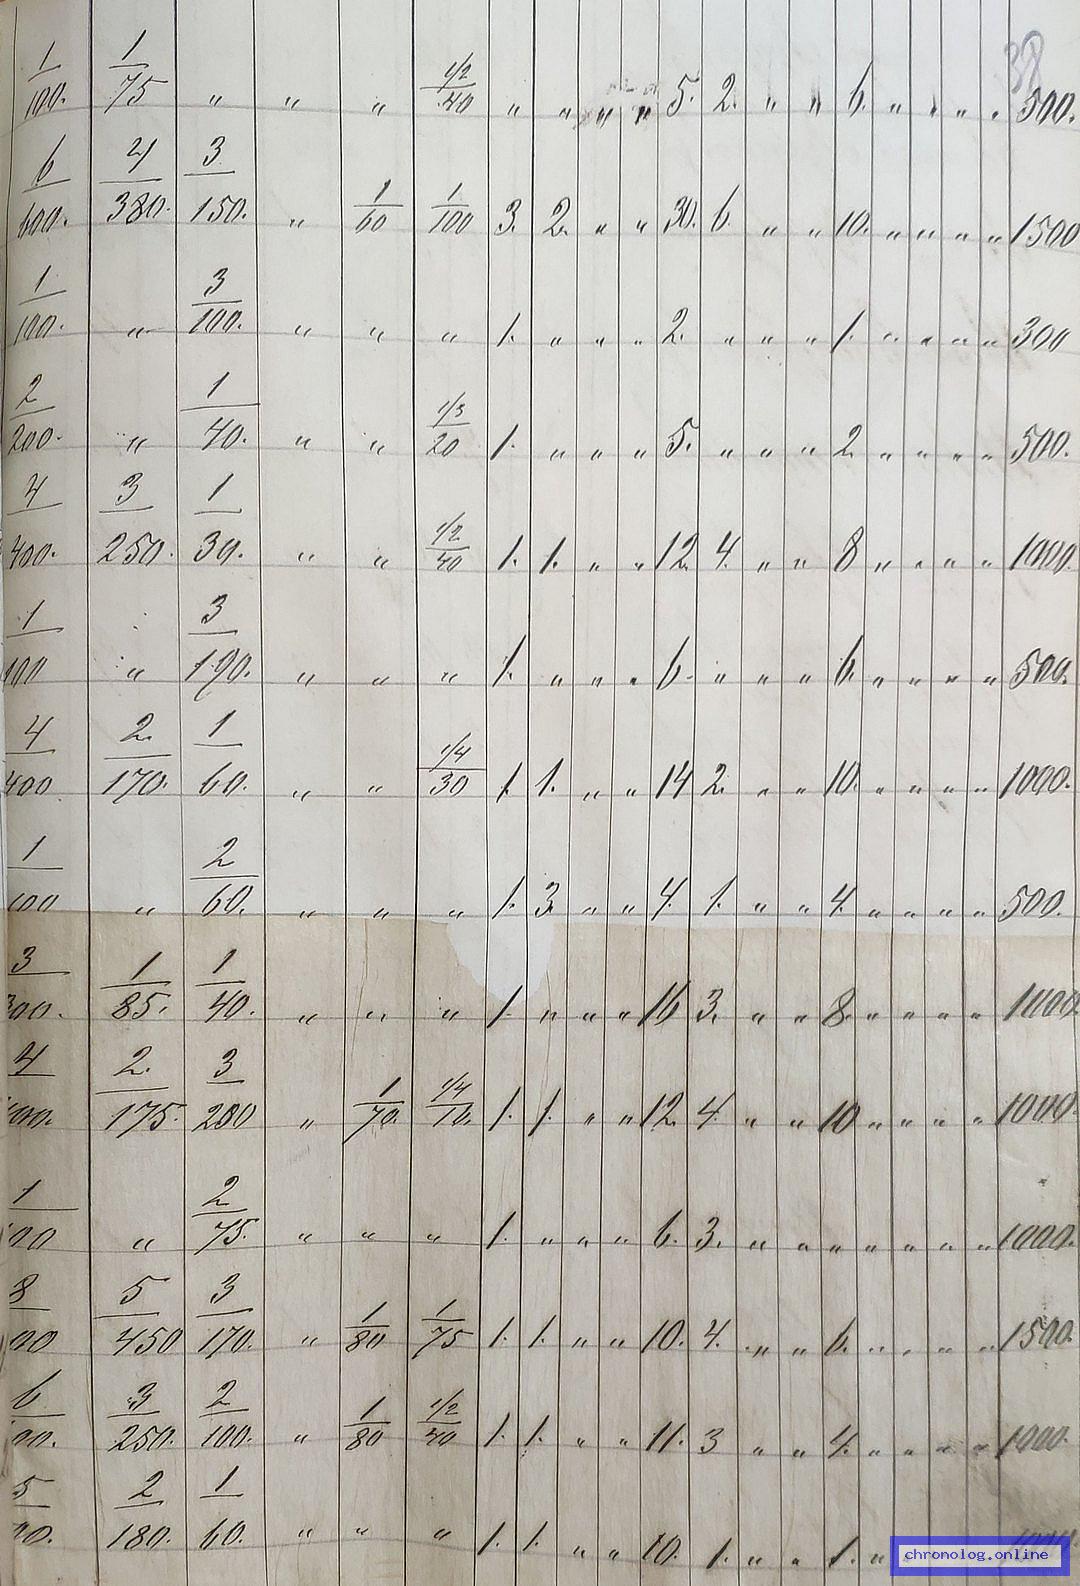 38
1/100. 1/75 〃 〃 〃 1/2/40 〃 〃 〃 〃 5. 2. 〃 〃 6. 〃 〃 〃 〃 500.
6/600. 4/380. 3/150. 〃 1/60 1/100 3. 2. 〃 〃 30. 6. 〃 〃 10. 〃 〃 〃 〃 1500
1/100. 〃 3/100. 〃 〃 〃 1. 〃 〃 〃 2. 〃 〃 〃 1. 〃 〃 〃 〃 300
2/200. 〃 1/40. 〃 〃 1/3/20 1. 〃 〃 〃 5. 〃 〃 〃 2. 〃 〃 〃 〃 500.
4/400. 3/250. 1/30. 〃 〃 1/2/40 1. 1. 〃 〃 12. 4. 〃 〃 8 〃 〃 〃 〃 1000.
1/100 〃 3/190. 〃 〃 〃 1. 〃 〃 〃 6. 〃 〃 〃 6. 〃 〃 〃 〃 500.
4/400 2./170. 1/60. 〃 〃 1/4/30 1. 1. 〃 〃 14 2. 〃 〃 10. 〃 〃 〃 〃 1000.
1/100 〃 2/60. 〃 〃 〃 1. 3. 〃 〃 4. 1. 〃 〃 4. 〃 〃 〃 〃 500.
3/300. 1/85. 1/40. 〃 〃 〃 1. 〃 〃 〃 16 3. 〃 〃 8. 〃 〃 〃 〃 1000
4/400. 2./175. 3/200 〃 1/70. 1/4/10. 1. 1. 〃 〃 12. 4. 〃 〃 10 〃 〃 〃 〃 1000.
1/00 〃 2/75. 〃 〃 〃 1. 〃 〃 〃 6. 3. 〃 〃 〃 〃 〃 〃 〃 1000.
8/00 5/450 3/170. 〃 1/80 1/75 1. 1. 〃 〃 10. 4. 〃 〃 6. 〃 〃 〃 〃 1500.
6/00. 3/250. 2/100. 〃 1/80 1/2/40 1. 1. 〃 〃 11. 3 〃 〃 4. 〃 〃 〃 〃 1000.
5/00. 2/180. 1/60. 〃 〃 〃 1. 1. 〃 〃 10. 1. 〃 〃 1. 〃
chronolog.online